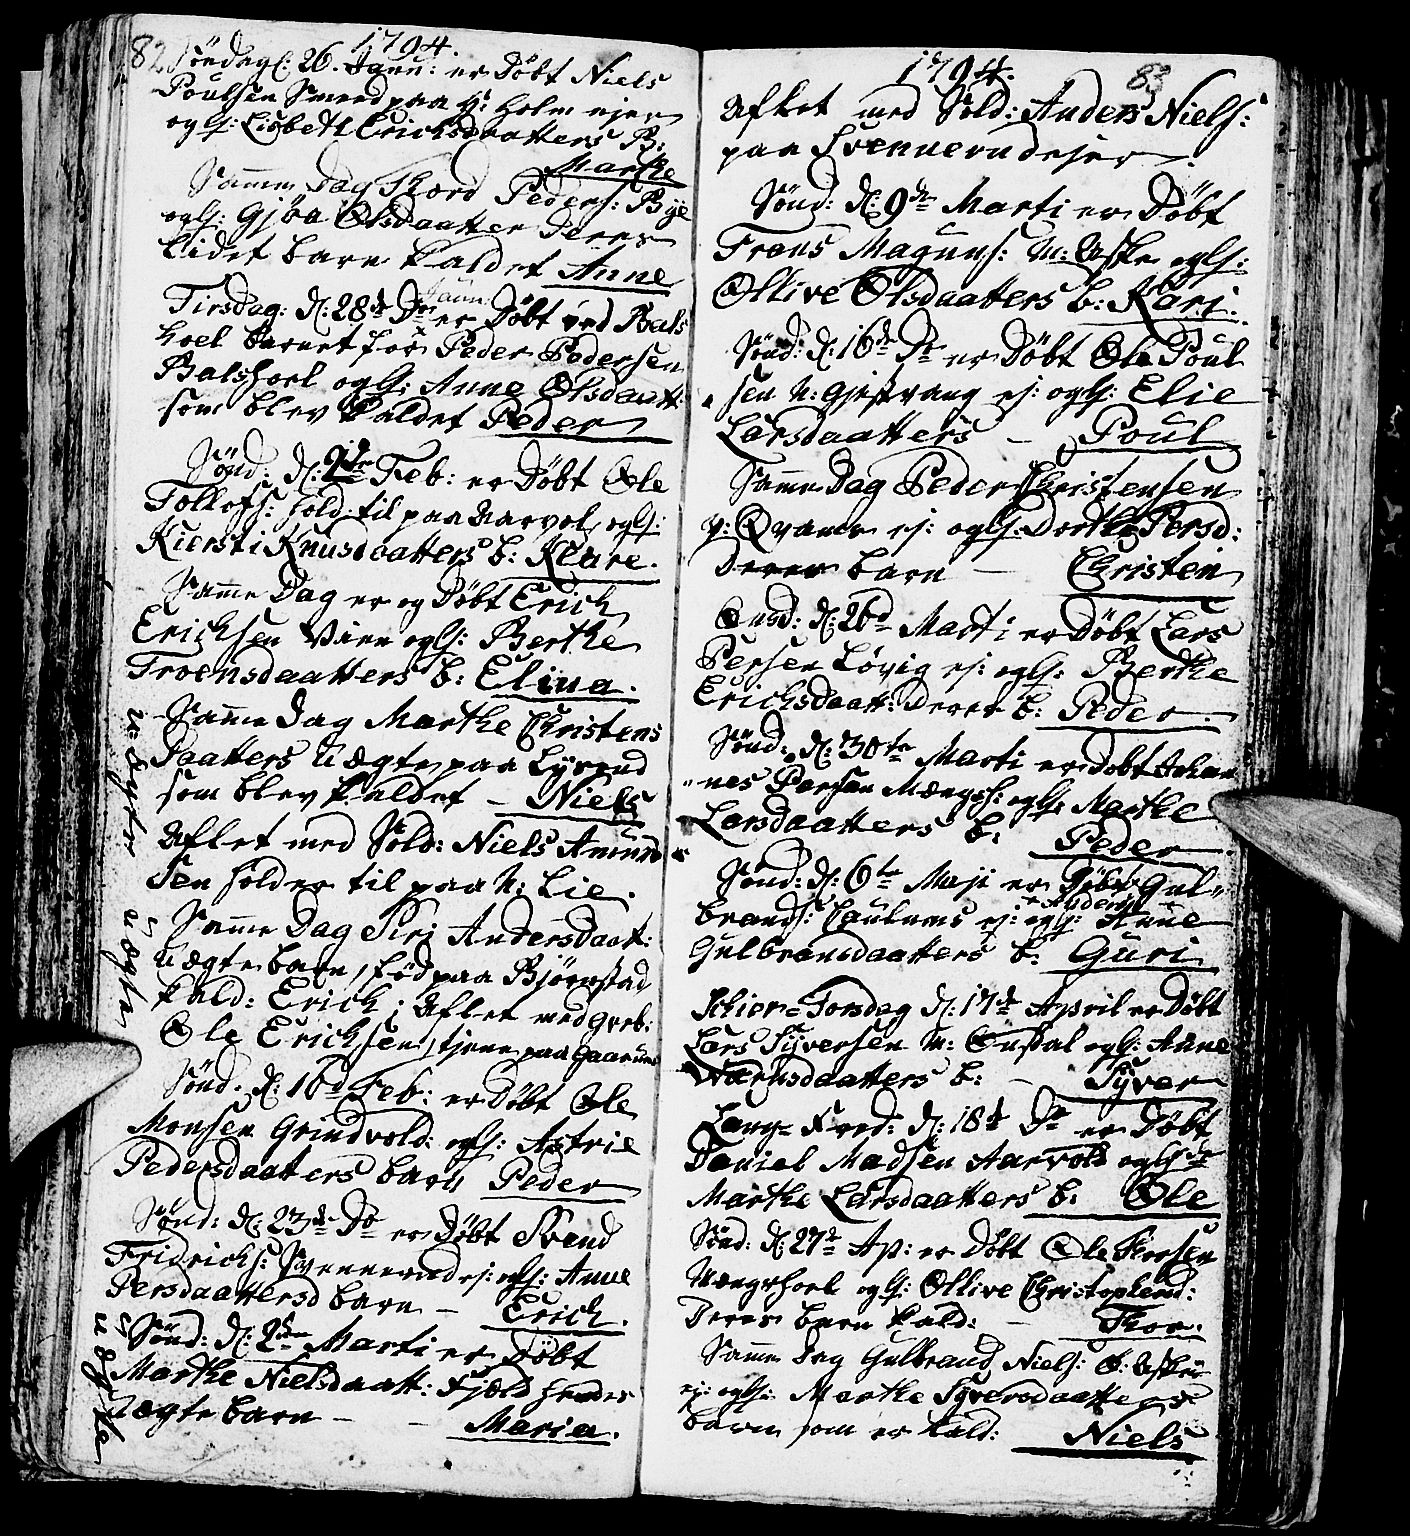 82
1794.
Söndags: 26. Janu: er Döbt Niels
Poulsen Smed paa H: Holm ejer
ogh: Lisbeth Erichsdaatters B:
Marthe
Samme Dag Thord Peders: Bÿe
ogh: Gjöa Olsdaatter Deres
Lidet barn kaldet Anne
Tirsdag: d: 28de Janu: er Döbt ved Bals
hoel barnet for Peder Pedersen
Balshoel ogh: Anne Olsdaatt:
som blev kaldet Peder
Sönd: d: 9de Feb: er Döbt Ole
Tollefs: hold: til paa Aarvol, ogh:
Kiersti Knusdaatters b: Klare.
Samme Dag er og Döbt Erich
Erichsen Viien ogh: Berthe
Troensdaatters b: Elina.
Samme Dag Marthe Christens
Daatters Uægte paa Lÿsrud
som blev kaldet – Niels
Aflet med Sold: Niels Amund
sen holder til paa N: Lie.
Samme Dag Siri Andersdaat:
Uægte barn, föd paa Björnstad
kald: Erich; Aflet med Greb:
Ole Erichsen, tjene paa Gaarum
Sönd: d: 16d Feb: er Döbt Ole
Monsen Grindvold: ogh: Astrie
Pedersdaatters barn Peder
Sönd: d: 23de Do er Döbt Svend
Fridrichs: Svennerud ej: ogh: Anne
Persdaatters barn – Erich.
Sönd: d: 2den Marti er Döbt
Marthe Nielsdaatt: Fjeld hendes
Uægte barn – – Maria.
uægte
uægte
uægte
1794.
83
Afket med Sold: Anders Niels:
paa Svennerud ejer.
Sönd: d: 9de Marti er Döbt
Trons Maguns: N: Aske ogh:
Ollive Olsdaatters b: Kari.
Sönd: d: 16de Do er Döbt Ole Poul
sen N: Gjestvang ej: ogh: Elie
Larsdaatters – Poul
Samme Dag Peder Christensen
Y: Qvamm ej: ogh: Dorthe Persd:
Deres barn – Christen
Onsd: d: 26d Marti er Döbt Lars
Persen Lövig ej: ogh: Berthe
Erichsdaatt: Deres b: Peder.
Sönd: d: 30te Marti er Döbt Johan
nes Persen Mængsh: ogh: Marthe
Larsdaatters b: Peder
Sönd: d: 6te Maji er Döbt Gul
brands: ej: ogh: Anne
Gulbransdaatters b: Guri
Schier=Torsdag d: 17de April er Döbt
Lars Sÿversen N: Onstal ogh: Anne
b: – Sÿver
Lang=Fred: d: 18de Do er Döbt
Daniel Madsen Aarvold ogh:
Marthe Larsdaatters b: Ole
Sönd: d: 27de Ap: er Döbt Ole Thorsen
Mængshoel ogh: Ollive Christophersd:
Deres barn kald: – Thor.
Samme Dag Gulbrand Niels: Ö: Aske
ej: ogh: Marthe Sÿversdaatters
barn som er kald: Niels